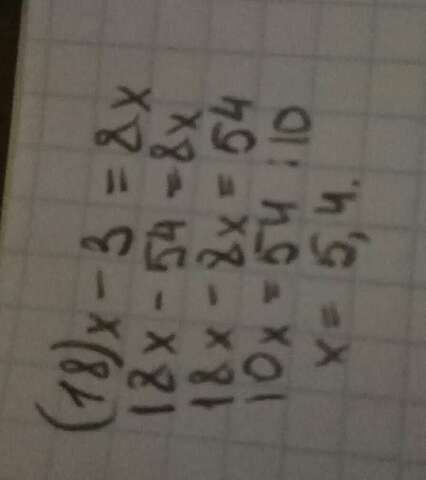 (18) x - 3 = 8x
18x - 54 = 8x
18x - 8x = 54
10x = 54 :10
x = 5,4.